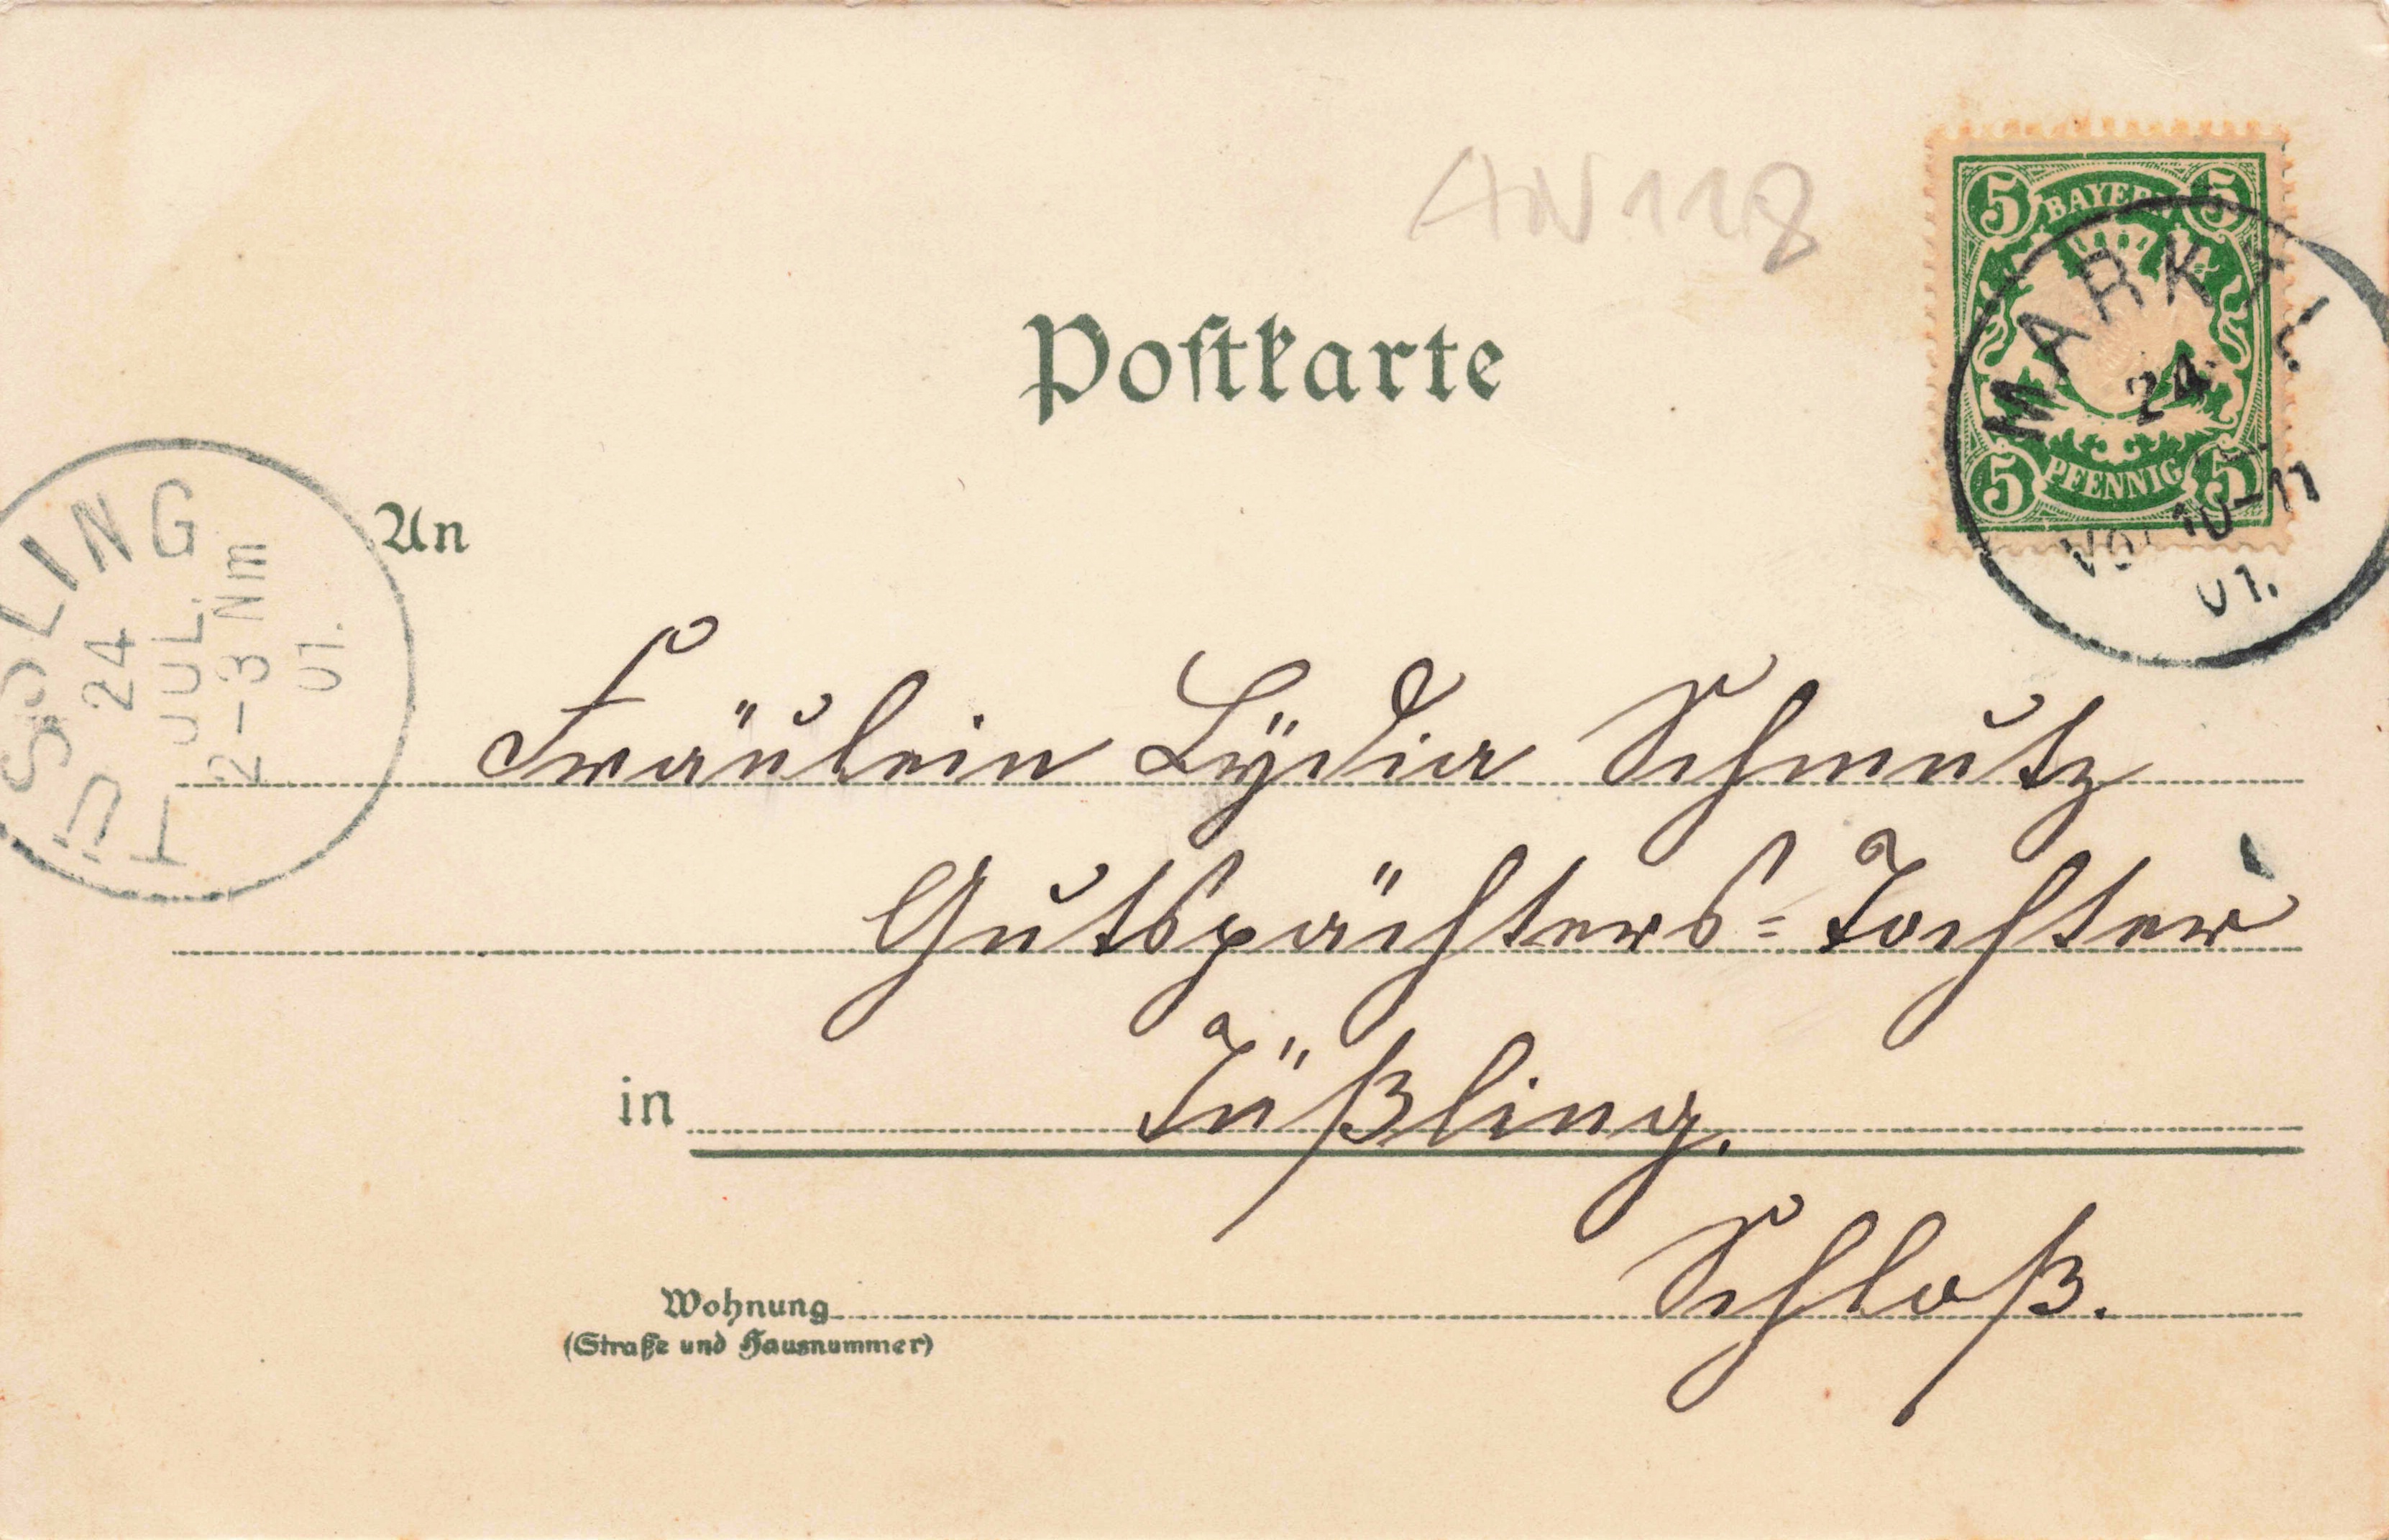 AN 118
5 BAYERN 5
5 PFENNIG 5
MARKTL
24.
VOR 10-11
01.
Postkarte
TÜSSLING
24
JUL.
2-3 Nm
01.
An
Fräulein Lÿdia Schmutz
Gutspächters=Tochter
in Tüßling.
Wohnung Schloß.
(Straße und Hausnummer)